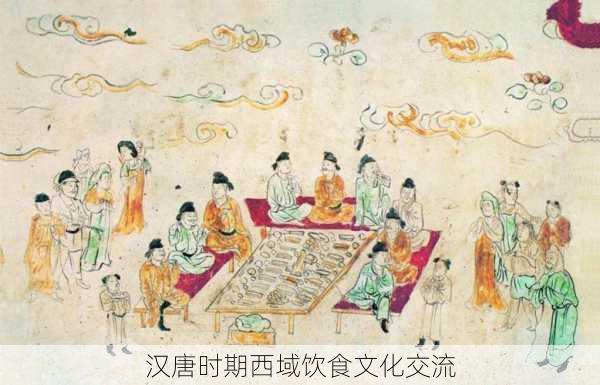 汉唐时期西域饮食文化交流